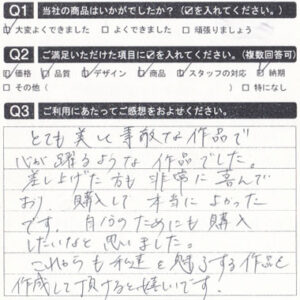 Q1 当社の商品はいかがでしたか？（☑を入れてください。）
☑大変よくできました □よくできました □頑張りましょう
Q2 ご満足いただけた項目に☑を入れてください。（複数回答可）
☑価格 ☑品質 ☑デザイン ☑商品 ☑スタッフの対応 ☑納期
□その他（ ） □特になし
Q3 ご利用にあたってご感想をおよせください。
とても美しく素敵な作品で
心が躍るような作品でした。
差し上げた方も非常に喜んで
おり、購入して本当によかった
です。自分のためにも購入
したいなと思いました。
これからも私達を魅了する作品を
作成して頂けると嬉しいです。